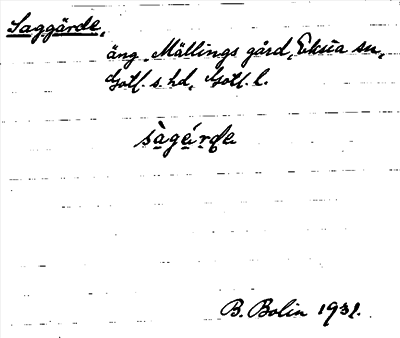 Saggärde,
äng, Mällings gård, Eksta sn,
Gotl. s. hd, Gotl. l.
sàgǽrde
B. Bolin 1931.